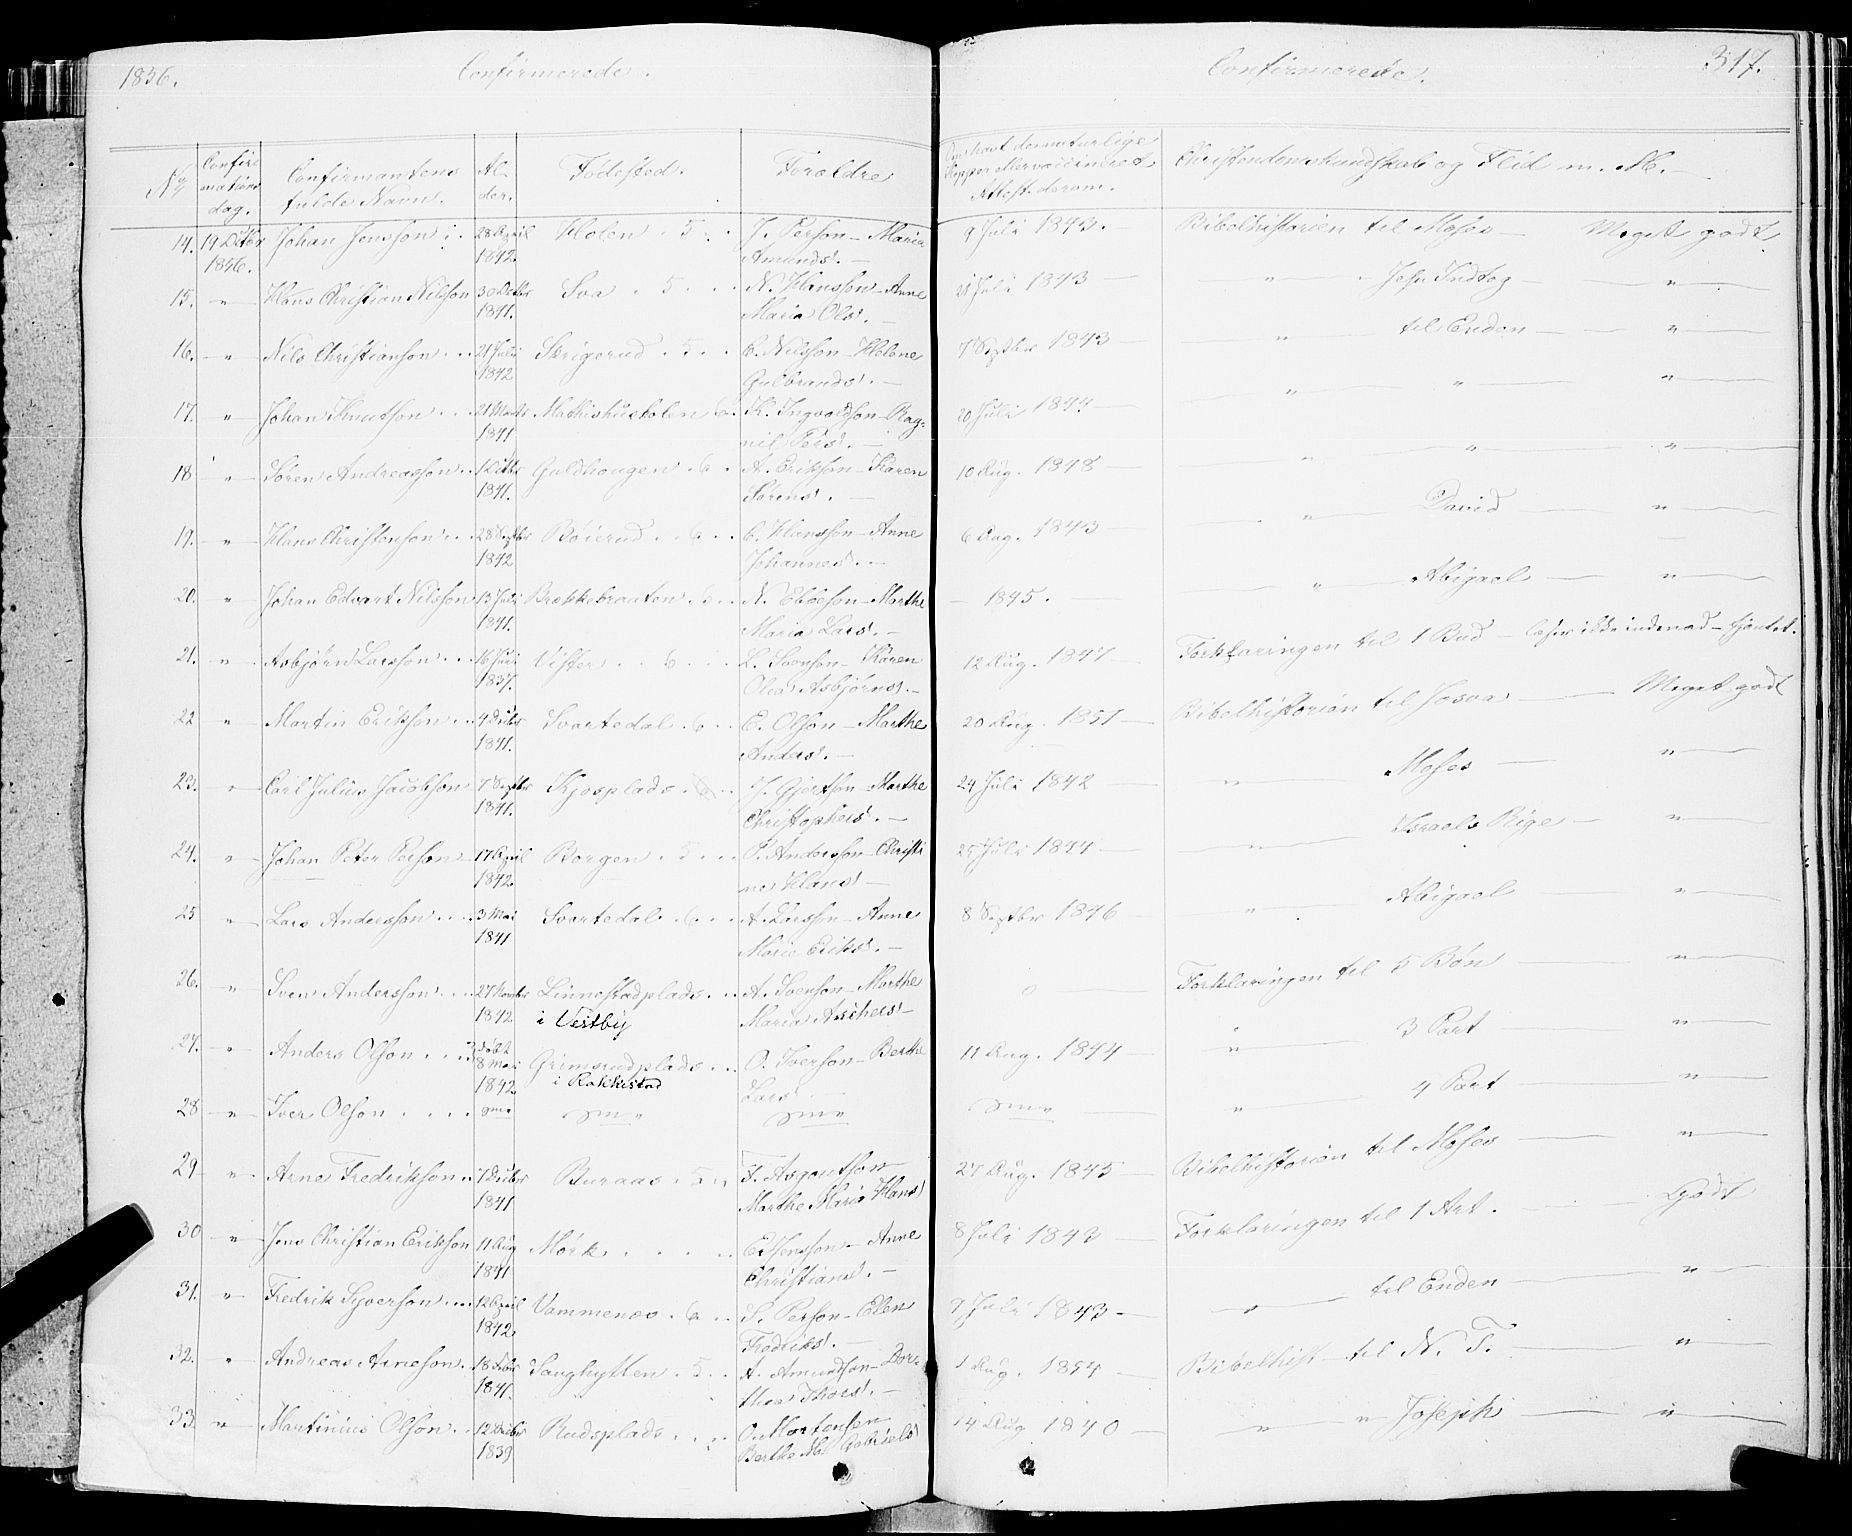 1856. Confirmerede. Confirmerede. 317.
No Confirmations dag. Confirmantens fulde Navn. Alder. Fødested. Forældre Om havt de naturlige Kopper eller vaccineret Attest derom. Christendomskundskab og Flid m. M.
14. 19 Octbr 1856. Johan Jensson 28 April 1842. Holen 5 J. Person – Maria Amunds. 9 Juli 1843. Bibelhistorien til Moses – Meget godt
15. " Hans Christian Nilsson 30 Octbr 1841. Sva 5 N. Hansson – Anne Maria Ols. 21 Juli 1843 " Jesu Indtog "
16. " Nils Christianson 21 Juli 1842 Skrigerud 5 C. Nilsson – Helene Gulbrands. 7 Septbr 1843 " til Enden "
17. " Johan Knutson 21 Marts 1841 Mathishuskolen 6 K. Ingvoldson – Ragnil Pers. 20 Juli 1844 " " "
18 " Søren Andreasson 1841. Guldhougen 6 A. Erikson – Karen Sørens. 10 Aug. 1848 " " "
19. " Hans Christenson 28 Septbr 1842 Bøierud 6 C. Hansson – Anne Johannes. 6 Aug. 1843 " David "
20. " Johan Edvart Nilsson 13 Juli 1841. Brækkebraaten 6 N. Ebbeson – Marthe Maria Lars. – 1845. " Abigael "
21. " Asbjørn Larsson 16 Juli 1837. Vister 6 L. Svenson – Karen Olea Asbjørns. 12 Aug. 1847 Forklaringen til 1 Bud – læser ikke indenad – fjantet.
22 " Martin Erikson 1841. Svartedal 6 E. Olson – Marthe Anders. 20 Aug. 1851 Bibelhistorien til Josva Meget godt
23. " Carl Julius Jacobson 7 Septbr 1841. Kjosplads 6 J. Gjertson – Marthe Christophers. 24 Juli 1842 " Moses "
24. " Johan Peter Person 17 April 1842. Borgen 5 P. Andersson – Christine Hans 25 Juli 1844 " Israels Rige "
25 " Lars Andersson 3 Mai 1841 Svartedal 6 A. Larsson – Anne Marie Eriks. 8 Septbr 1846 " Abigael "
26. " Sven Andersson 27 Novbr 1842 Linnestadplads i Vestby A. Svenson – Marthe Maria o Forklaringen til 5 Bøn "
27. " Anders Olson døbt 8 Mai 1842. Grimsrudplads i Rakkestad O. Iverson – Berthe Lars 11 Aug. 1844 " 3 Part "
28 " Iver Olson " 4 Part "
29 " Arne Fredrikson 1841 Buraas 5 F. Asgoutson Marthe Maria Hans 27 Aug. 1845 Bibelhistorien til Moses "
30 " Jens Christian Erikson 11 Aug 1841 Mørk E. Jensson – Anne Christians. 8 Juli 1843 Forklaringen til 1 Art. Godt
31. " Fredrik Syverson 12 April 1842. Vammenæs 6 S. Person – Elen Fredriks. 9 Juli 1843 " til Enden "
32. " Andreas Arneson 1841. Saughytten 5 A. Amundson – Dorthea Thors. 1 Aug. 1854 Bibelhist. til N. T. "
33. " Martinius Olson 1839 Rudsplads O. Mortensen Berthe Ma. Gabriels 14 Aug 1840 " " Joseph "